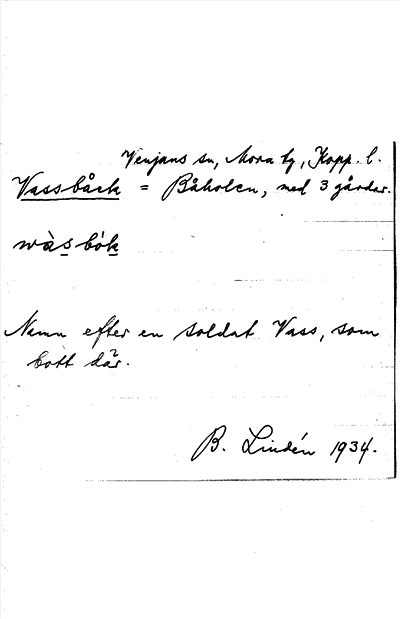 Venjans sn, Mora tg, Kopp. l.
Vassbåck = Båholen, med 3 gårdar.
wàs bók
Namn efter en soldat Vass, som
bott där.
B. Lindén 1934.